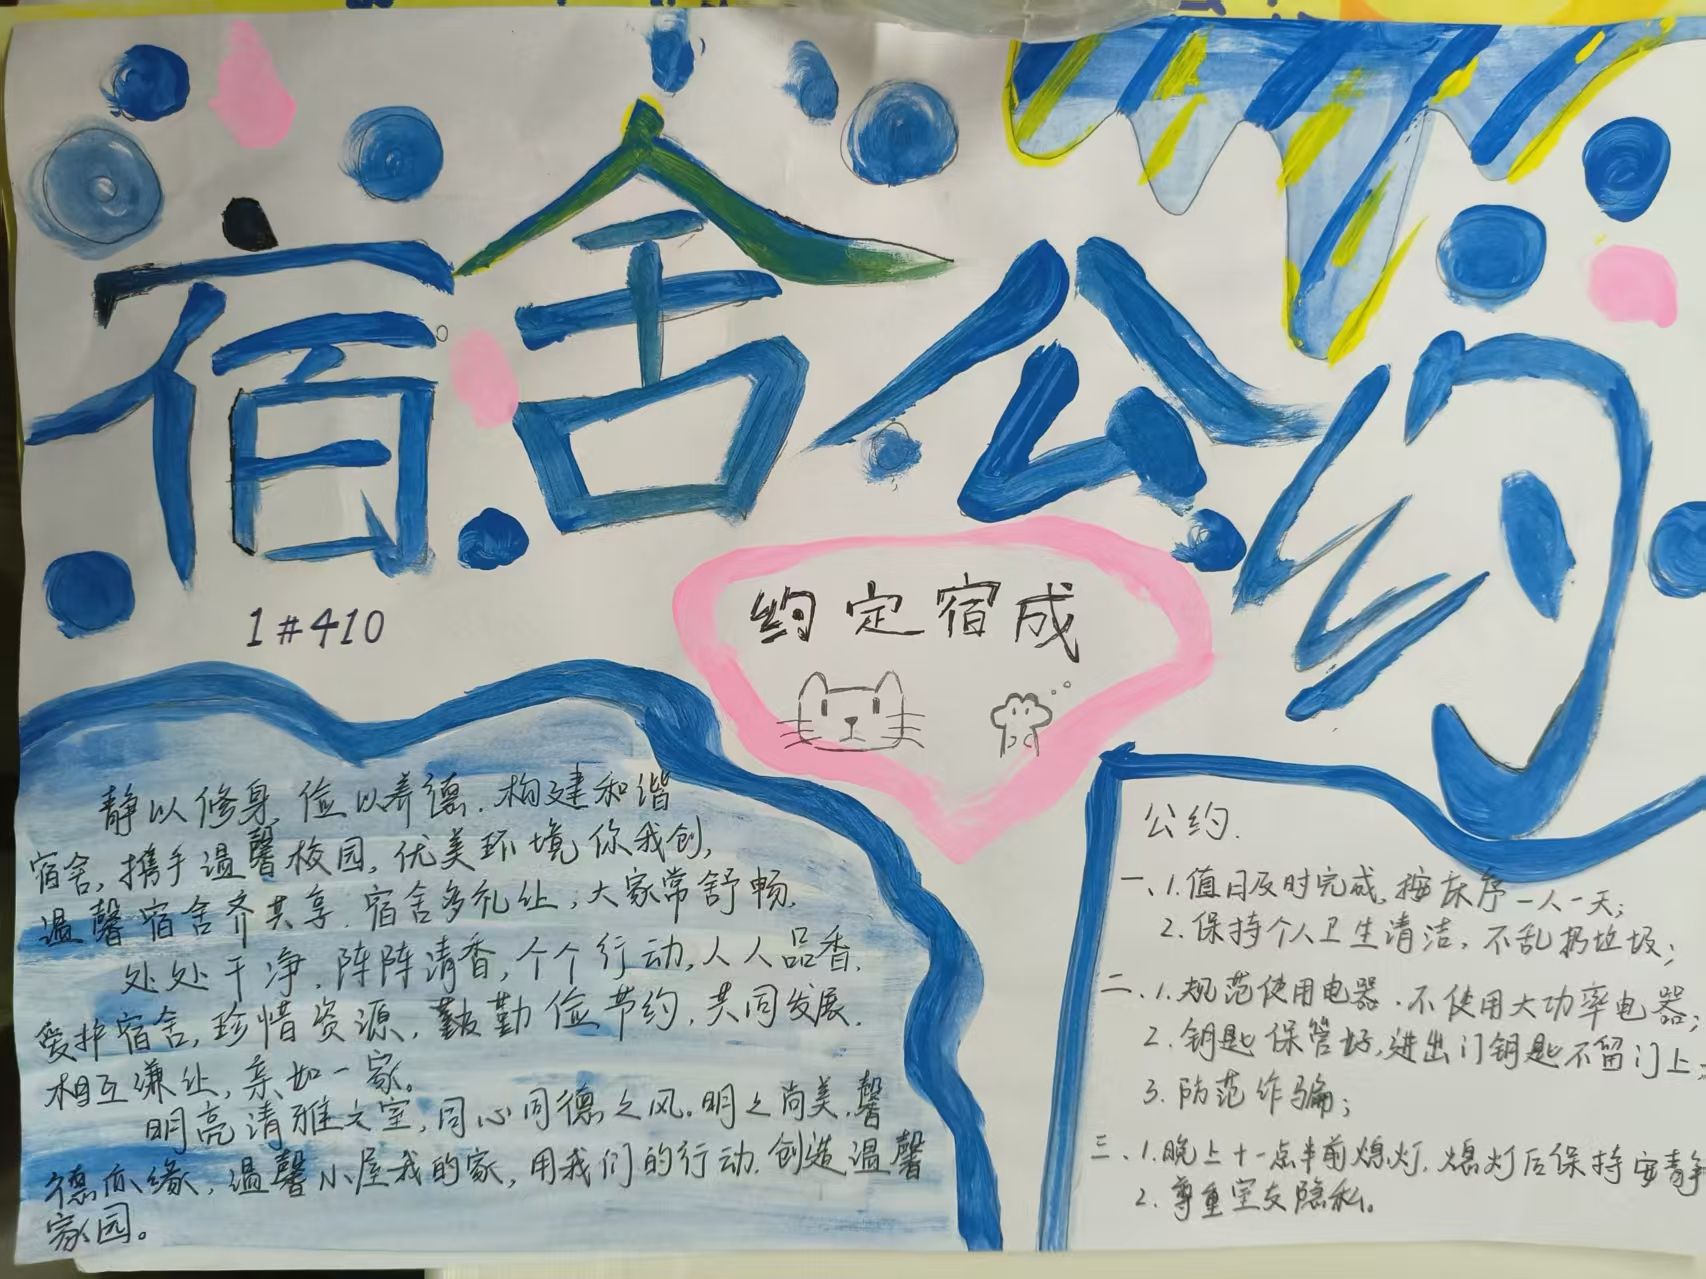 宿舍公约
1#410
约定宿成
静以修身,俭以养德.构建和谐
宿舍,携手温馨校园,优美环境你我创,
温馨宿舍齐共享.宿舍多礼让;大家常舒畅.
处处干净.阵阵清香,个个行动,人人品香.
爱护宿舍,珍惜资源,勤勤俭节约,共同发展.
相互谦让,亲如一家。
明亮清雅之室,同心同德之风。明之尚美.馨
德亦缘,温馨小屋我的家,用我们的行动.创造温馨
家园。
公约.
一、1.值日及时完成,按床序一人一天;
2.保持个人卫生清洁,不乱扔垃圾;
二、1.规范使用电器.不使用大功率电器;
2.钥匙保管好,进出门钥匙不留门上;
3.防范诈骗;
三、1.晚上十一点半前熄灯.熄灯后保持安静
2.尊重室友隐私。